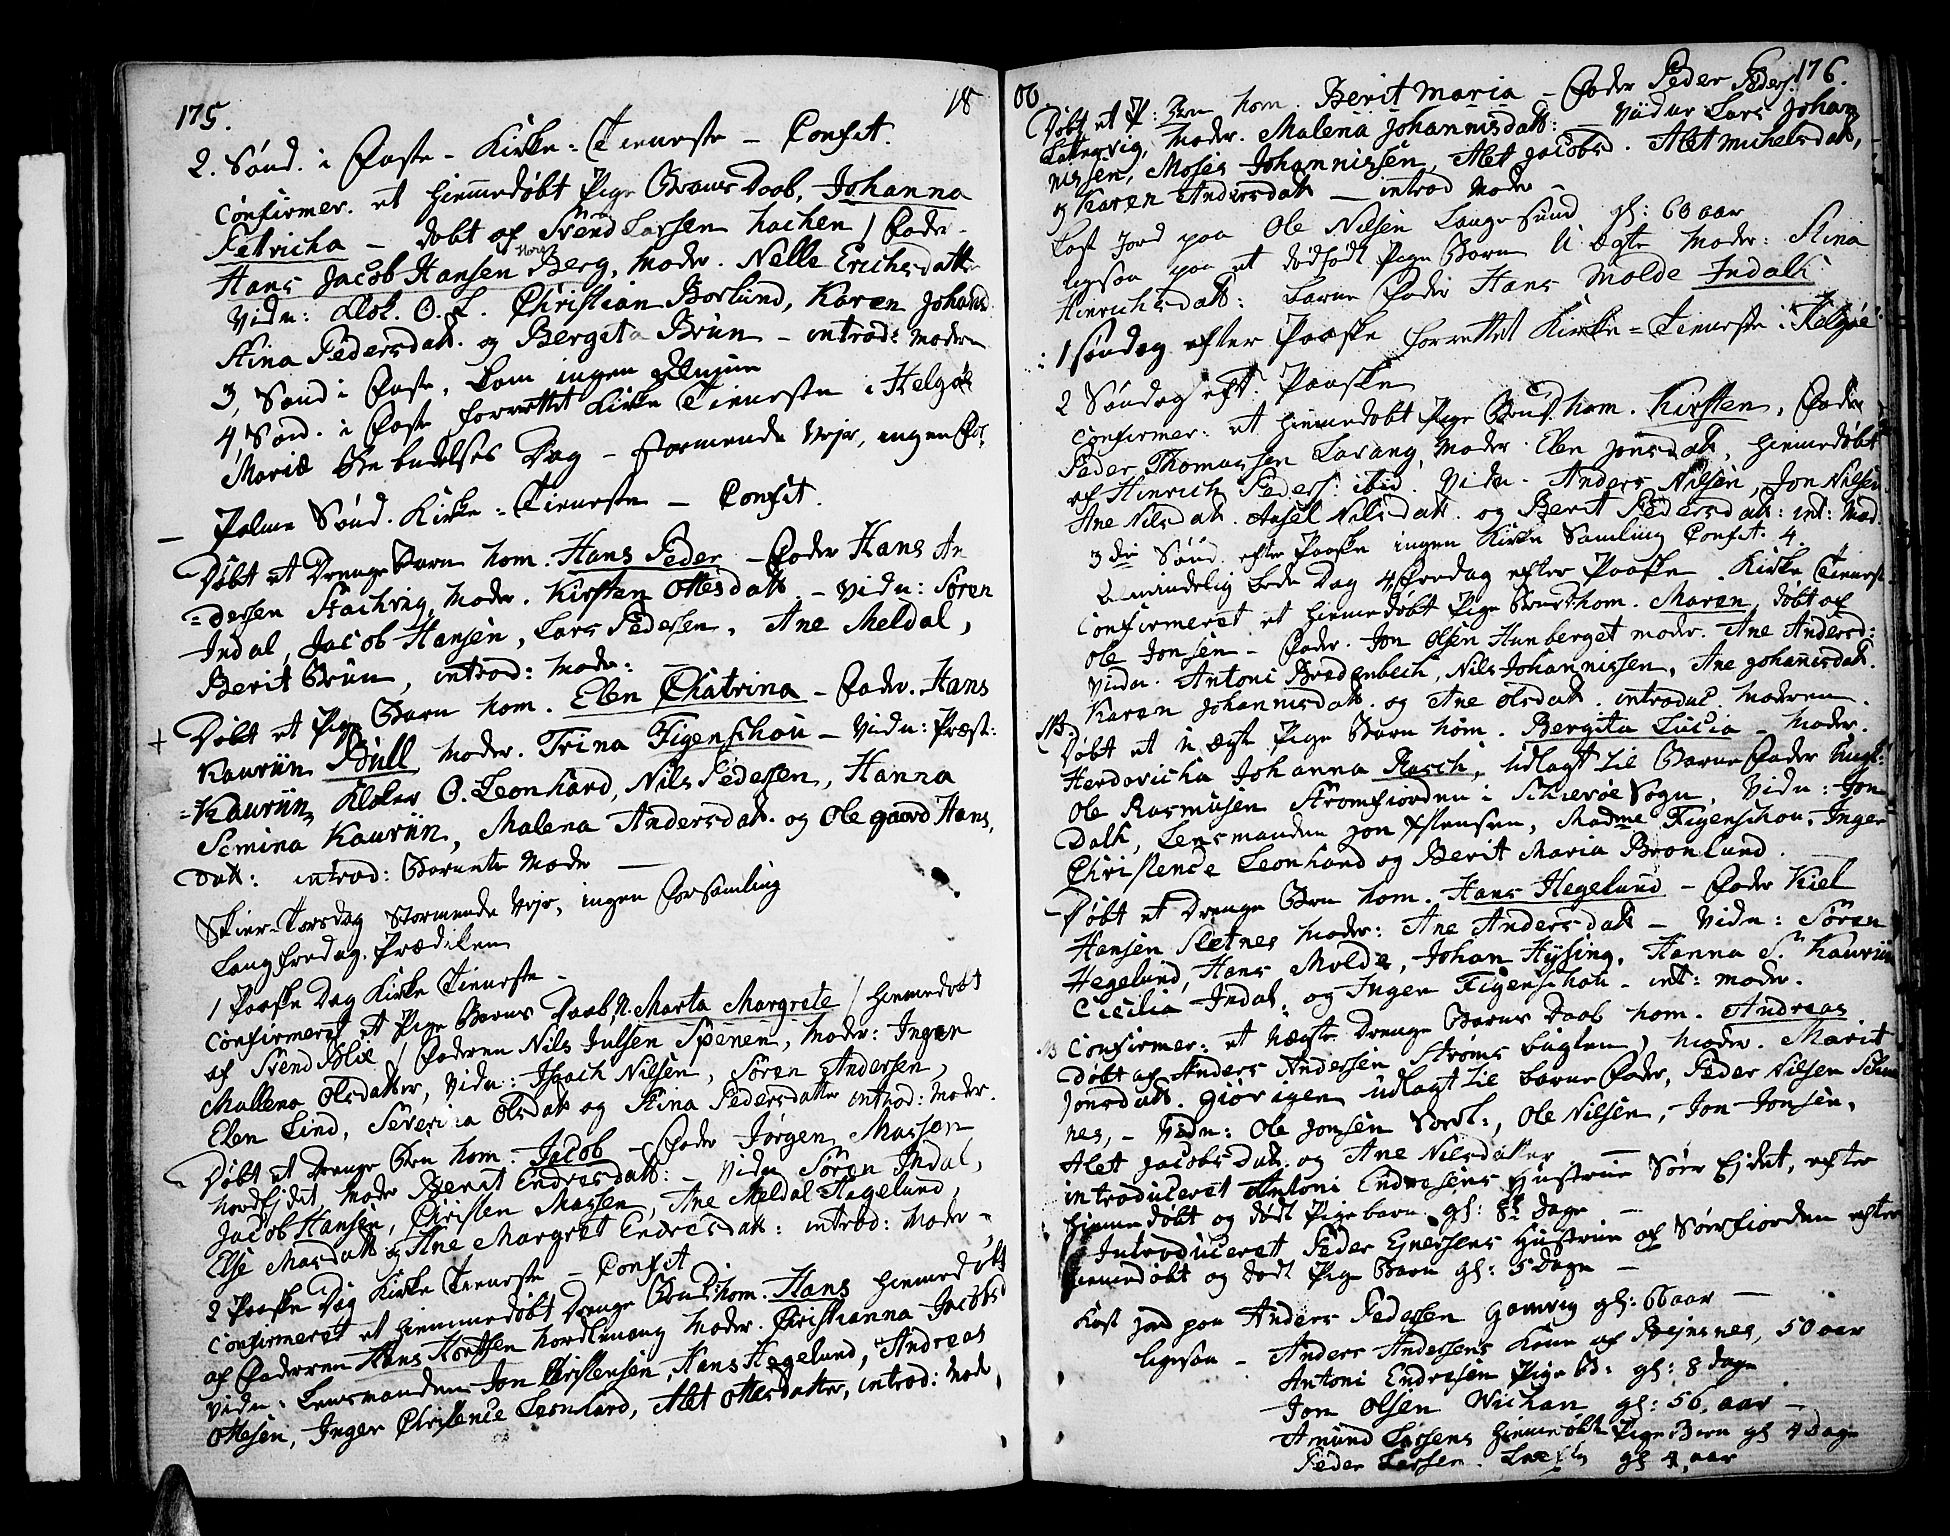 175. 18
2. Sønd. i Faste - Kirke-Tieneste - Confit.
Confirmer. et hiemedøbt Pige Barns Daab, Johanna
Petricha - døbt af Svend Larssen hachen / Fader
Hans Jacob Hansen Berg, Moder. Nelle Erichsdatter
Vidn: Klok. O. L. Christian Borlund, Karen Johansd
Stina Pedersdatt. og Bergeta Brun - introd: Moder
3, Sønd i Faste, kom ingen
4 Sønd. i Faste forrettet Kirke Tieneste i Helgøe
Mariæ Bebudelses Dag - stormende Vejr, ingen For
Palme Sønd. Kirke-Tieneste - Confit.
Døbt et Drenge Barn hom. Hans Peder - Fader Hans An
=dersen Stachvig, Moder. Kirsten Ottesdatt. - Vidn: Søren
Indal, Jacob Hansen, Lars Pedersen, Ane Meldal,
Berit Brun, introd: Moder:
+ Døbt et Pige Barn hom. Elen Chatrina - Fader. Hans
Kauriin Bull Moder. Trina Figenschou - Vidn: Præst:
=Kauriin, Kloker O. Leonhard, Nils Pedersen, Hanna
Semina Kauriin, Malena Andersdatt. og Olegaard Hans,
Datt: introd: Barnets Moder
Skier-Torsdag Stormende Vejr, ingen Forsamling
Langfredag. Prædiken
1 Paaske Dag Kirke Tieneste -
Confirmeret et Pige Barns Daab, N. Marta Margrete / hiemedøbt
af Svend Blix / Faderen Nils Julsen Spenen, Moder: Inger
Mallena Olsdatter, Vidn: Isach Nilsen, Søren Andersen,
Elen Lind, Severina Olsdatt og Stina Pedersdatter introd: Moder.
Døbt et Drenge Brn hom. Jacob - Fader Jørgen Masson
Nord Ejdet, Moder Berit Endresdatt: - Vidn Søren Indal,
Jacob Hansen, Christen Massen, Ane Meldal Hegelund,
Else Masdatt og Ane Margret Endresdatt: introd: Moder -
2 Paaske Dag Kirke Tieneste - Confit
Confirmeret et hiemmedøbt Drenge Brns hom. Hans hiemedøbt
af Faderen Hans Hortsen Nordlenang Moder. Christianna Jacobsd
Vidn: Lensmanden Jon Christensen, Hans Hegelund, Andreas
Ottesen, Inger Christence Leonhard, Alet Ottesdatter, introd: Mode
00. 176.
Døbt et P: Brn hom. Berit Maria - Fader Peder Peders:
Lattervig, Moder. Malena Johannisdatt: - Vidner Lars Johan
nissen, Moses Johannissen, Alet Jacobsd. Alet Michelsdatt,
og Karen Andersdatt - introd Moder -
Kast Jord paa Ole Nilsen Langesund gl: 60 aar
ligesaa paa et dødfødt Pige Barn U ægte Moder: Stina
Hinrichsdatt: Barne Fader Hans Molde Indalh
: 1 Søndag efter Paaske forrettet Kirke-Tieneste i Helgøe
2 Søndag eft. Paaske
Confirmer: et hiemedøbt Pige Brns. hom. Kirsten, Fader
Peder Thomassen Lavang, Moder. Elen Jonsdatt, hiemedøbt
af Hinrich Peders: ibid. Vidn. Anders Nilsen, Jon Nilsen
Ane Nilsdatt. Axsel Nilsdatt. og Berit Pedersdatt: int: Mod.
3die Sønd. efter Paaske ingen Kirke Samling Confit. 4.
Almindelig Bede Dag 4 Fredag efter Paaske. Kirke Tienest
Confirmeret et hiemedøbt Pige Brns hom. Maren, døbt af
Ole Jonsen - Fader. Jon Olsen Hunberget Moder. Ane Andersd:
Vidn. Antoni Bredenbech, Nils Johannissen, Ane Johannisdatt.
Karen Johannisdatt. og Ane Olsdatt. introduc. Moderen.
NB. Døbt et uægte Pige Barn hom. Bergita Lucia - Moder.
Herdovicka Johanna Rasch, Udlagt til Barne Fader Ungk:
Ole Rasmusen Strømfiorden i Schierøe Sogn, Vidn: Jon
Dalh, Lensmanden Jon Xstensen, Madme Figenschou, Inger
Christence Leonhard og Berit Maria Brønlund.
Døbt et Drenge Brn hom. Hans Hegelund - Fader Kiel
Hansen Sletnes Moder: Ane Andersdatt - Vidn: Søren
Hegelund, Hans Molde, Johan Hysing, Hanna S. Kauriin
Cicilia Indal, og Inger Figenschou - int: Moder.
Confirmer: et uægte Drenge Barns Daab hom. Andreas
døbt af Anders Andersen Strøms buglen, Moder. Marit
Jonsdatt. giør igen Udlagt til Barne Fader, Peder Nilsen Skin
nes, - Vidn: Ole Jonsen Vordt:, Ole Nilsen, Jon Jonsen,
Alet Jacobsdatt og Ane Nilsdatter -
introduceret Antoni Endresens Hustrue Sør Ejdet, efter
hiemedøbt og dødt Pigebarn. gl: 8te dage -
Introduceret Peder Enersens Hustrue af Sørfiorden efter
hiemedøbt og dødt Pige Barn gl: 5 dage -
Kast jord paa Anders Pedersen Gamvig gl: 66 aar -
ligesaa - Anders Andersens Kone af Rejnsnes, 50 aar
Antoni Endresen Pige Bd: gl: 8 dage
Jon Olsen Wichan gl: 56, aar -
Amund Larsens hiemedøbt Pige Barn gl 4 Dage
Peder Larsen. gl 4, aar